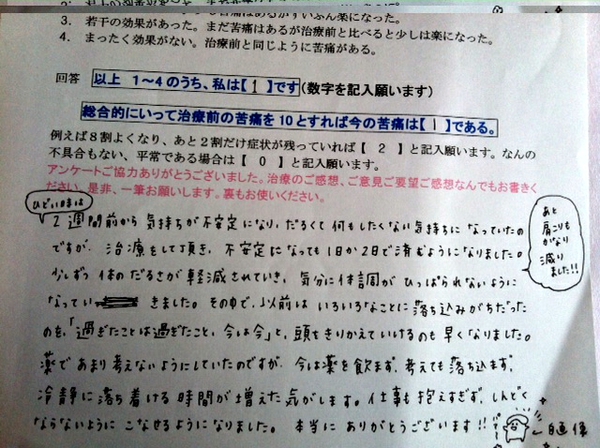 3. 若干の効果があった。まだ苦痛はあるが治療前と比べると少しは楽になった。
4. まったく効果がない。治療前と同じように苦痛がある。
回答 以上 1～4のうち、私は【 1 】です(数字を記入願います)
総合的にいって治療前の苦痛を10とすれば今の苦痛は【 1 】である。
例えば8割よくなり、あと2割だけ症状が残っていれば【 2 】と記入願います。なんの
不具合もない、平常である場合は【 0 】と記入願います。
アンケートご協力ありがとうございました。治療のご感想、ご意見ご要望ご感想なんでもお書きく
ださい。是非、一筆お願いします。裏もお使いください。
ひどい時は
2週間前から気持ちが不安定になり、だるくて何もしたくない気持ちになっていたの
ですが、治療をして頂き、不安定になっても1日か2日で済むようになりました。
少しずつ体のだるさが軽減されていき、気分に体調がひっぱられないように
なってい きました。その中で、以前はいろいろなことに落ち込みがちだった
のも、「過ぎたことは過ぎたこと、今は今」と、頭をきりかえていけるのも早くなりました。
薬であまり考えないようにしていたのですが、今は薬を飲まず、考えても落ち込まず、
冷静に落ち着ける時間が増えた気がします。仕事も抱えすぎず、しんどく
ならないようにこなせるようになりました。本当にありがとうございます!!
あと
肩こりも
かなり
減り
ました!!
自画像